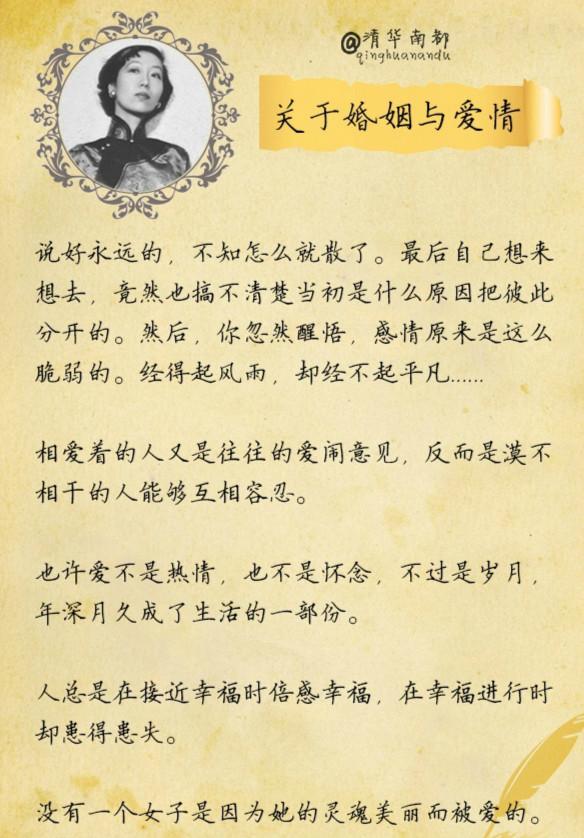 @清华南都
qinghuanandu
关于婚姻与爱情
说好永远的，不知怎么就散了。最后自己想来
想去，竟然也搞不清楚当初是什么原因把彼此
分开的。然后，你忽然醒悟，感情原来是这么
脆弱的。经得起风雨，却经不起平凡......
相爱着的人又是往往的爱闹意见，反而是漠不
相干的人能够互相容忍。
也许爱不是热情，也不是怀念，不过是岁月，
年深月久成了生活的一部份。
人总是在接近幸福时倍感幸福，在幸福进行时
却患得患失。
没有一个女子是因为她的灵魂美丽而被爱的。